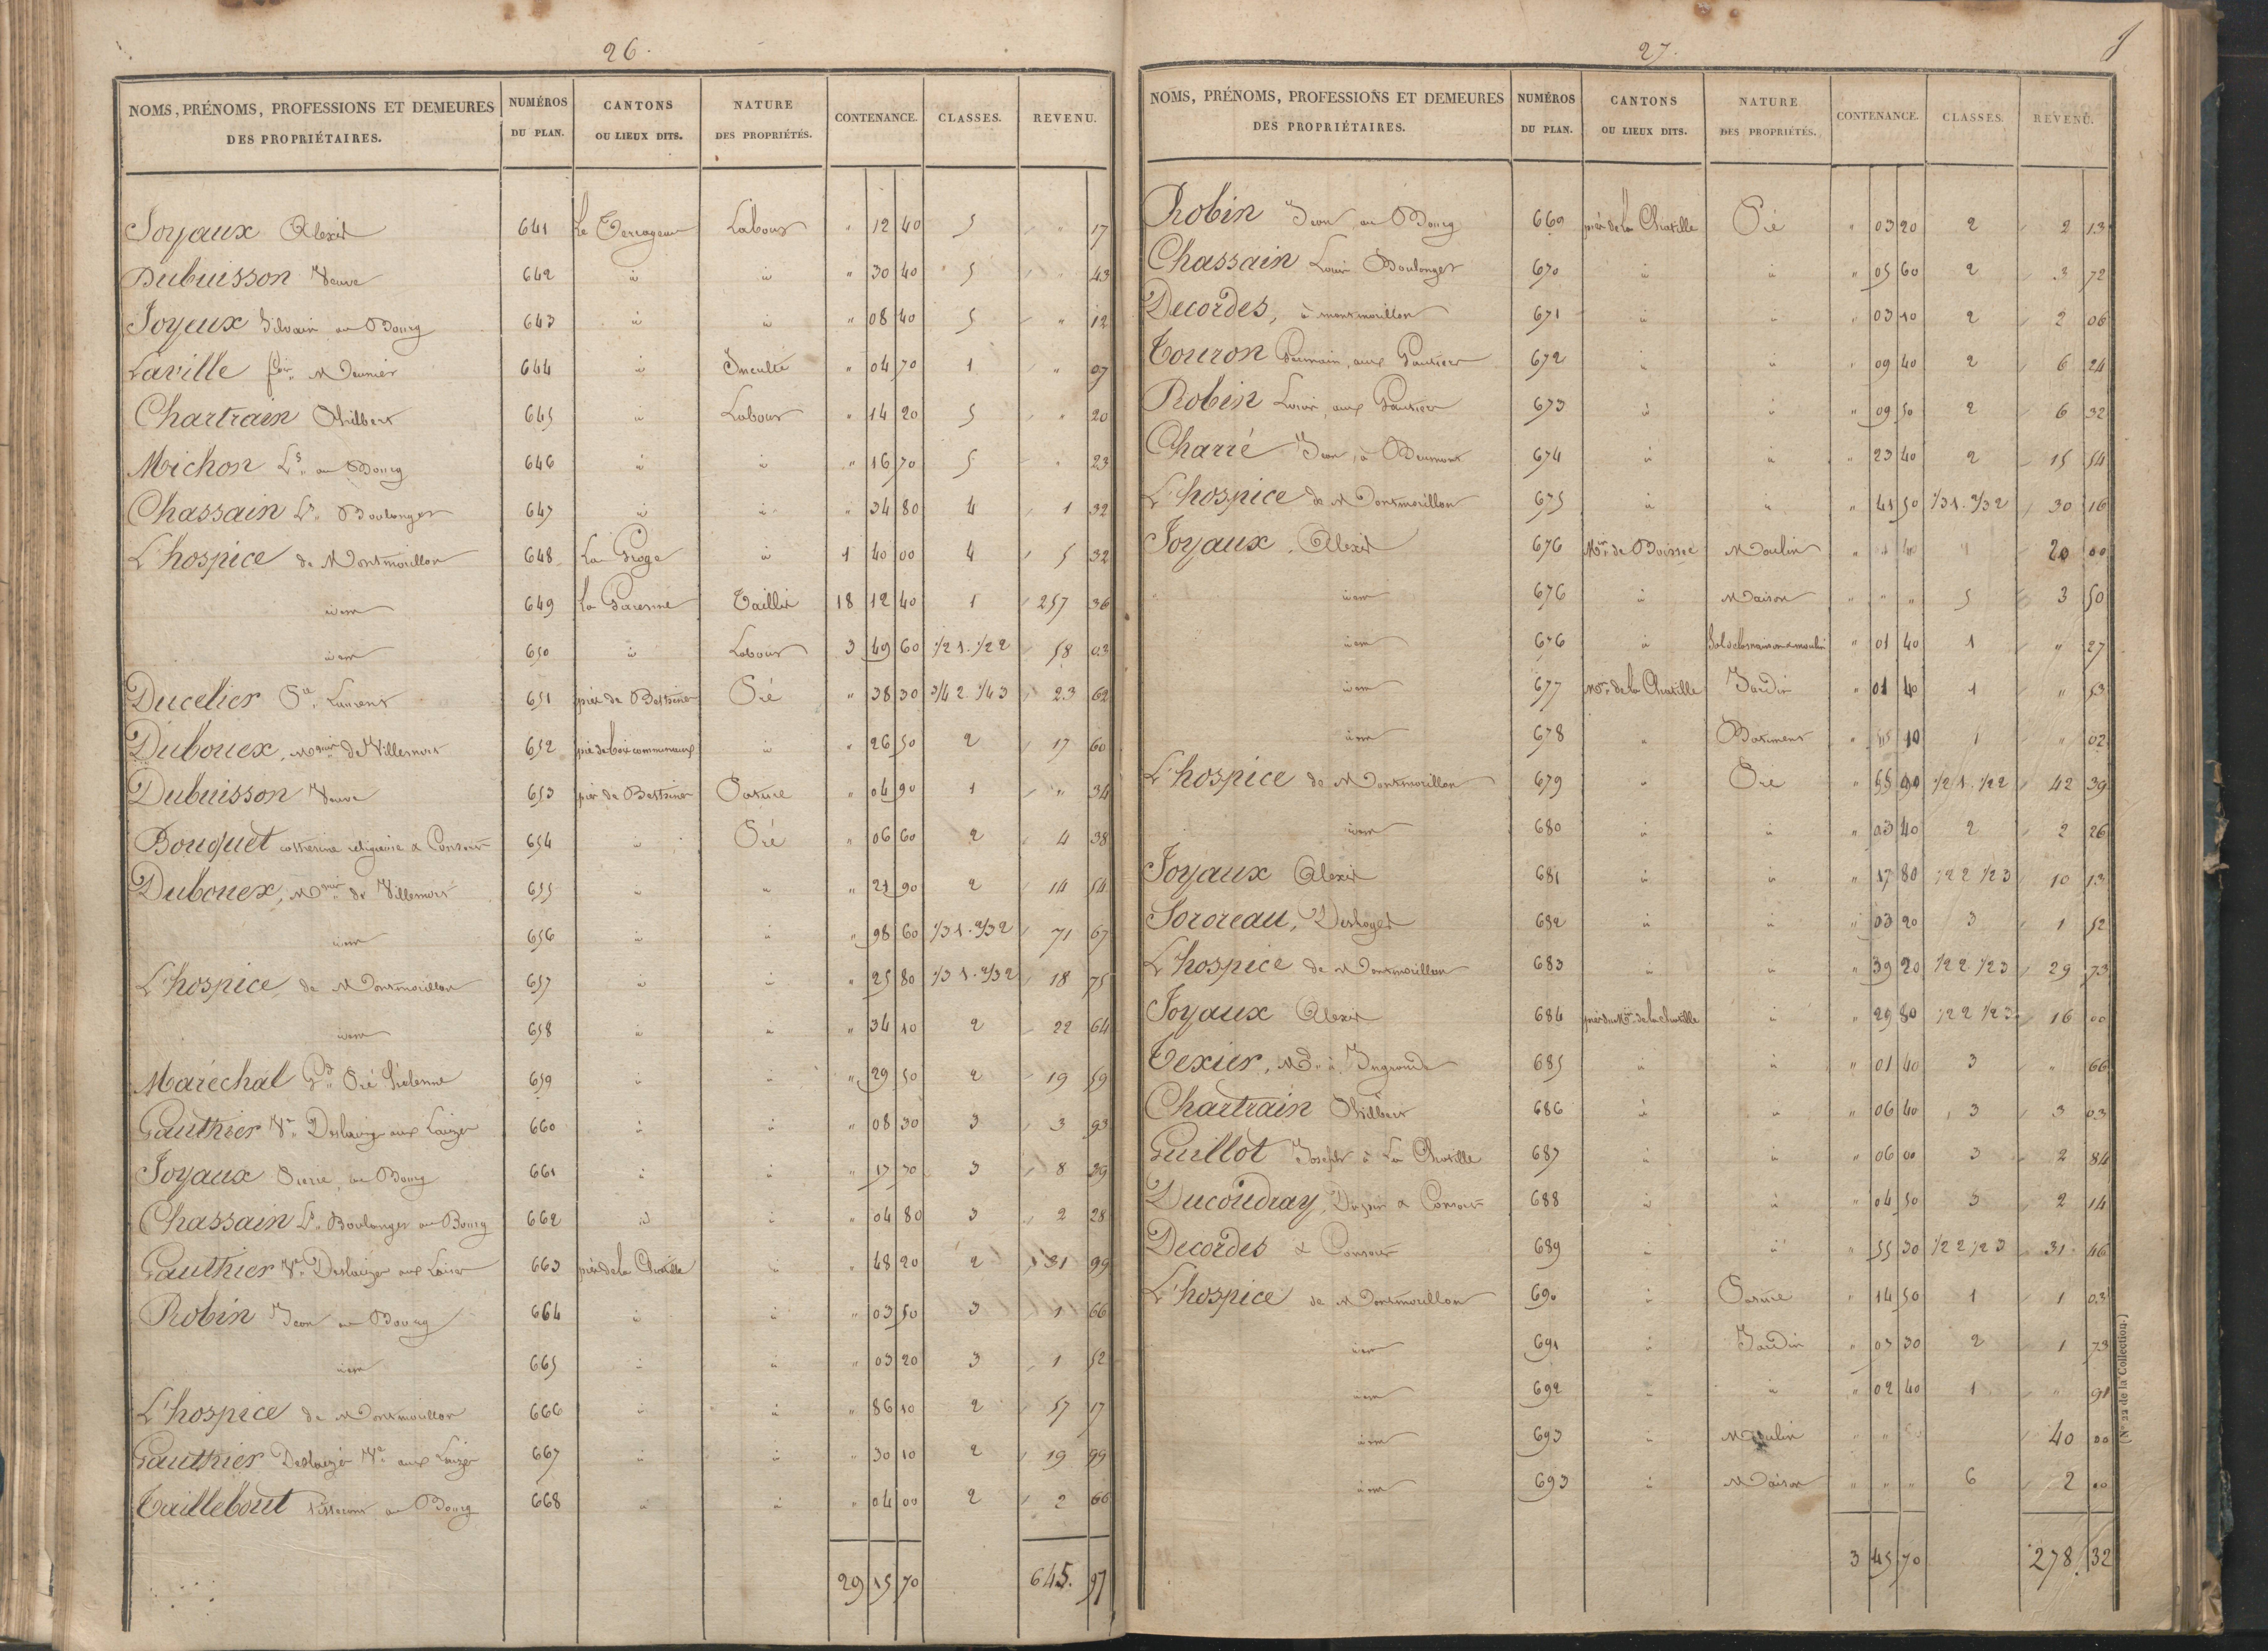 26.
NOMS, PRÉNOMS, PROFESSIONS ET DEMEURES DES PROPRIÉTAIRES. NUMÉROS DU PLAN. CANTONS OU LIEUX DITS. NATURE DES PROPRIÉTÉS. CONTENANCE. CLASSES. REVENU.
Joyaux Alexis 641 Le Terrageau Labour " 12 40 5 " 17
Dubuisson Veuve 642 id id " 30 40 5 " 43
Joyeux Silvain au Bourg 643 id id " 08 40 5 " 12
Laville Meunier 644 id Inculte " 04 70 1 " 07
Chartrain Philbert 645 id Labour " 14 20 5 " 20
Michon Ls au Bourg 646 id id " 16 70 5 " 23
Chassain Ls Boulanger 647 id id " 34 80 4 1 32
L'hospice de Montmorillon 648 La id 1 40 00 4 5 32
idem 649 La Garenne Taillis 18 12 40 1 257 36
idem 650 id Labour 3 49 60 1/2 1. 1/2 2 58 03
Ducelier Laurent 651 près de Pré " 38 30 3/4 2 1/4 3 23 62
Dubouex, de Villemort 652 id " 26 50 2 17 60
Dubuisson Veuve 653 près de Pature " 04 90 1 " 34
Bouquet catherine religieuse & Consort 654 id Pré " 06 60 2 4 38
Dubouex, de Villemort 655 id id " 21 90 2 14 54
idem 656 id id " 98 60 1/3 1. 2/3 2 71 67
L'hospice de Montmorillon 657 id id " 25 80 1/3 1. 2/3 2 18 75
idem 658 id id " 34 10 2 22 64
Maréchal 659 id id " 29 50 2 19 59
Gauthier Ve aux 660 id id " 08 30 3 3 93
Joyaux Pierre, au Bourg 661 id id " 17 70 3 8 39
Chassain Ls Boulanger au Bourg 662 id id " 04 80 3 2 28
Gauthier Ve aux 663 près de la Chatille id " 48 20 2 31 99
Robin Jean au Bourg 664 id id " 03 50 3 1 66
idem 665 id id " 03 20 3 1 52
L'hospice de Montmorillon 666 id id " 86 10 2 57 17
Gauthier Ve aux 667 id id " 30 10 2 19 99
Taillebout au Bourg 668 id id " 04 00 2 2 66
29 15 70 645. 97
27.
NOMS, PRÉNOMS, PROFESSIONS ET DEMEURES DES PROPRIÉTAIRES. NUMÉROS DU PLAN. CANTONS OU LIEUX DITS. NATURE DES PROPRIÉTÉS. CONTENANCE. CLASSES. REVENU.
Robin Jean, au Bourg 669 près de la Chatille Pré " 03 20 2 2 13
Chassain Louis Boulanger 670 id id " 05 60 2 3 72
Decordes, à montmorillon 671 id id " 03 10 2 2 06
Touron Germain, aux 672 id id " 09 40 2 6 24
Robin Louis, aux 673 id id " 09 50 2 6 32
Charré Jean, à 674 id id " 23 40 2 15 54
L'hospice de Montmorillon 675 id id " 41 50 1/3 1. 2/3 2 30 16
Joyaux Alexis 676 Moulin 20 00
idem 676 id Maison " " " 5 3 50
idem 676 id Sol de la maison & moulin " 01 40 1 " 27
idem 677 Min de la Chatille Jardin " 01 40 1 " 53
idem 678 " Batiment 10 1 " 02
L'hospice de Montmorillon 679 " Pré " 55 90 1/2 1. 1/2 2 42 39
idem 680 id id " 03 40 2 2 26
Joyaux Alexis 681 id id " 17 80 1/2 2 1/2 3 10 13
Sororeau, Desloges 682 id id " 03 20 3 1 52
L'hospice de Montmorillon 683 id id " 39 20 1/2 2 1/2 3 29 73
Joyaux Alexis 684 près du Min de la Chatille id " 29 80 1/2 2 1/2 3 16 00
Texier, Md à Ingrande 685 id id " 01 40 3 " 66
Chartrain Philbert 686 id id " 06 40 3 3 03
Guillot Joseph à La Chatille 687 id id " 06 00 3 2 84
Ducoudray, & Consort 688 id id " 04 50 3 2 14
Decordes & Consort 689 id id " 55 30 1/2 2 1/2 3 31 46
L'hospice de Montmorillon 690 id Pature " 14 50 1 1 03
idem 691 id Jardin " 05 30 2 1 73
idem 692 id id " 02 40 1 " 91
idem 693 id Moulin " " 40 00
idem 693 id Maison " " " 6 2 00
3 45 70 278. 32
(N° 22 de la Collection.)